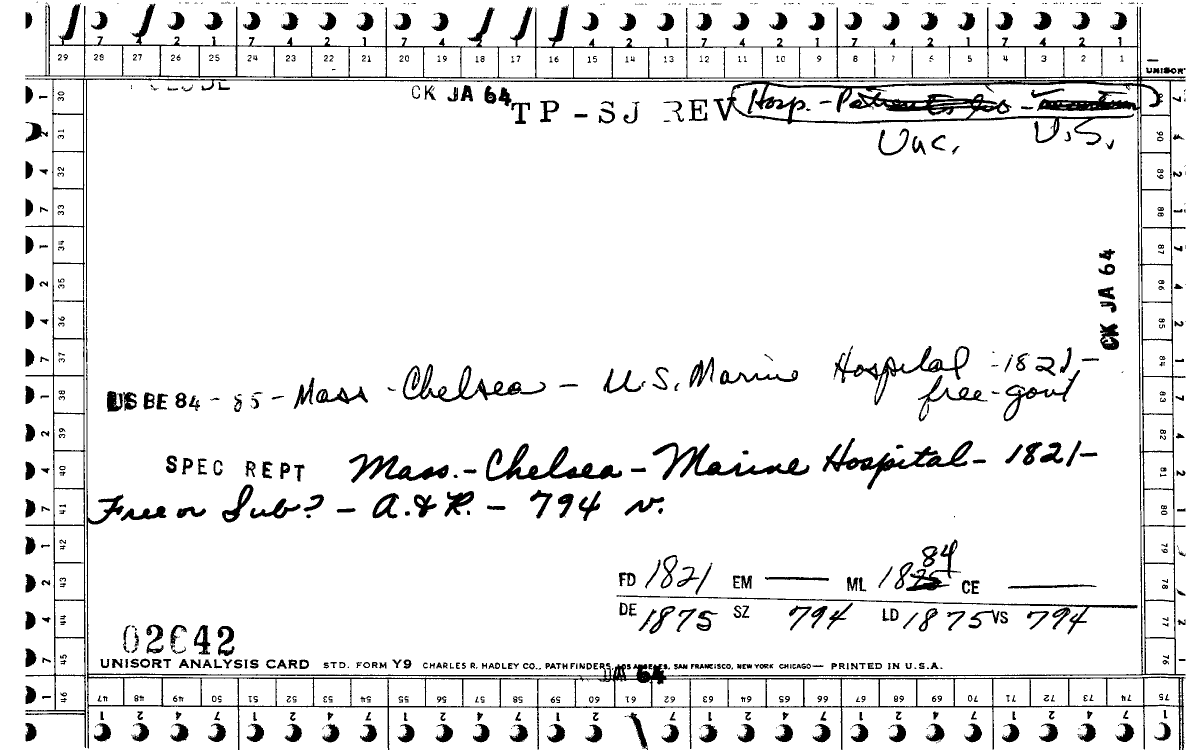 7 4 2 1 7 4 2 1 7 4 2 1 7 4 2 1 7 4 2 1 7 4 2 1 7 4 2 1
29 28 27 26 25 24 23 22 21 20 19 18 17 16 15 14 13 12 11 10 9 8 7 6 5 4 3 2 1
UNISORT
CK JA 64
TP-SJ REV Hosp. -
Unc. U.S.
CK JA 64
US BE 84 - 85 - Mass - Chelsea - U.S. Marine Hospital - 1821-
free-govt
SPEC REPT Mass.-Chelsea-Marine Hospital-1821-
Free or Sub? - A.&R. - 794 v.
84
FD 1821 EM — ML 1875 CE —
DE 1875 SZ 794 LD 1875 VS 794
02642
UNISORT ANALYSIS CARD STD. FORM Y9 CHARLES R. HADLEY CO., PATHFINDERS, LOS ANGELES, SAN FRANCISCO, NEW YORK CHICAGO— PRINTED IN U.S.A.
64
30 31 32 33 34 35 36 37 38 39 40 41 42 43 44 45 46
47 48 49 50 51 52 53 54 55 56 57 58 59 60 61 62 63 64 65 66 67 68 69 70 71 72 73 74 75
90 89 88 87 86 85 84 83 82 81 80 79 78 77 76